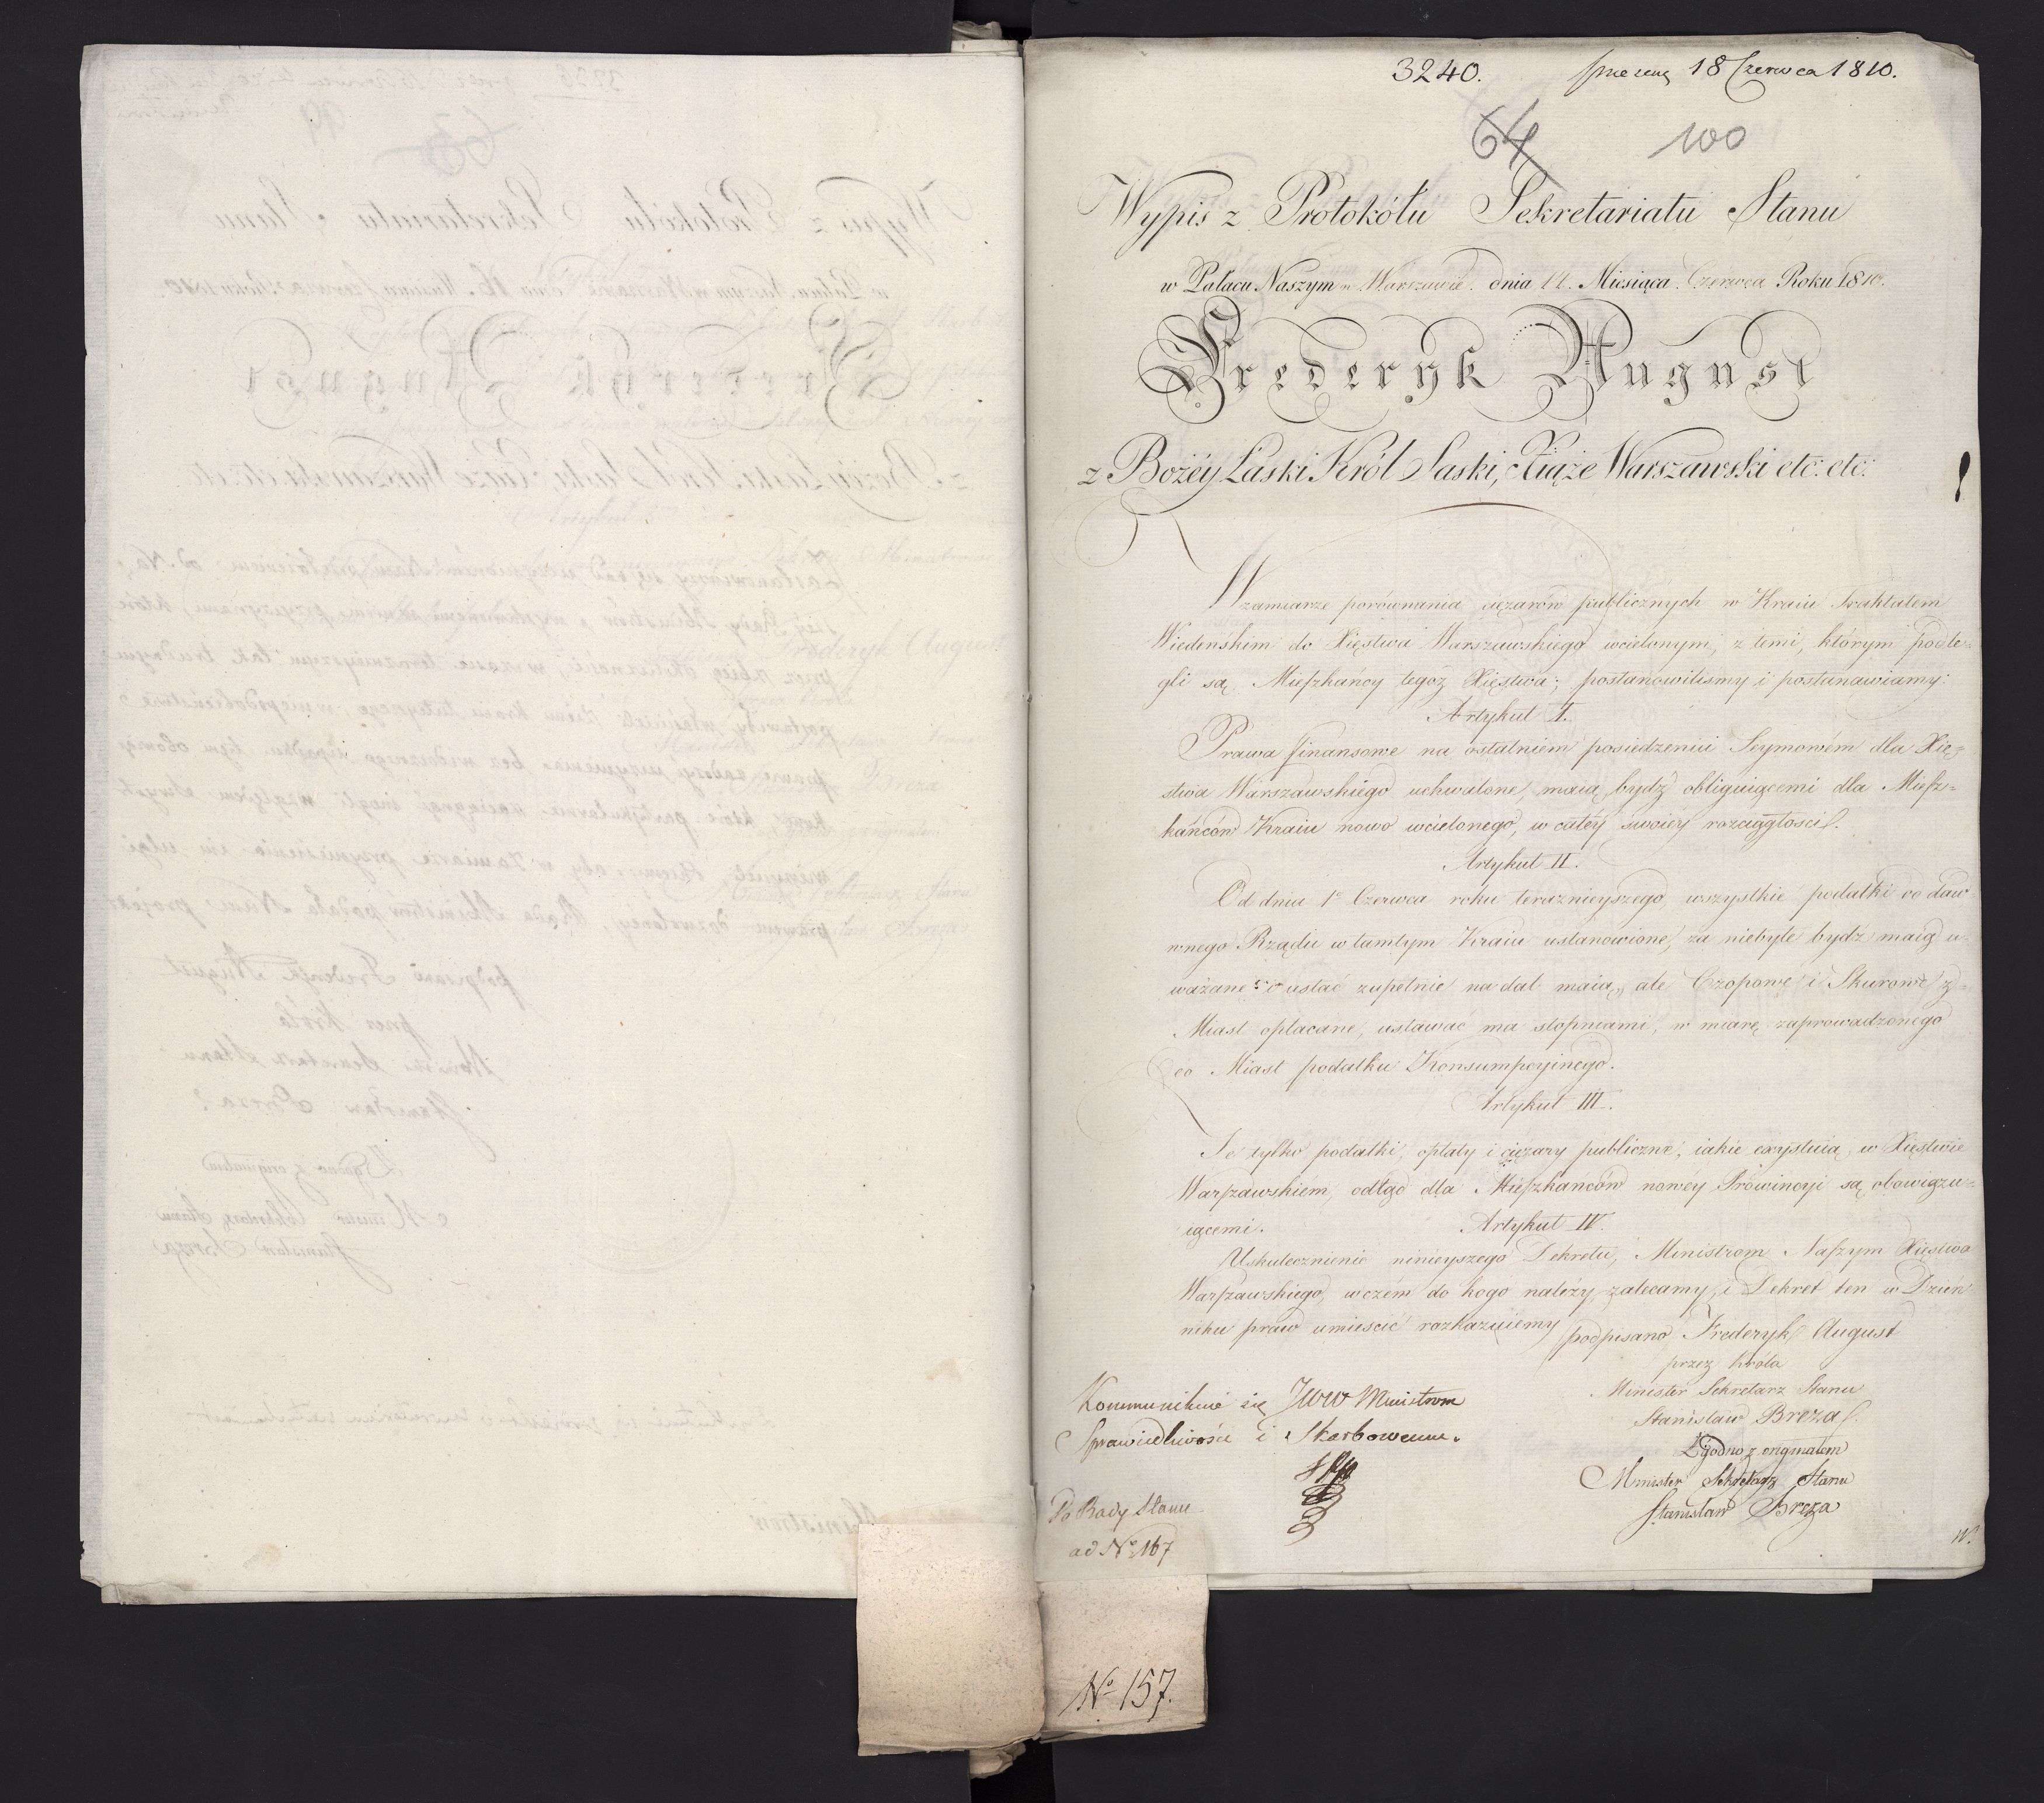 3240. 18 Czerwca 1810.
64 100
Wypis z Protokółu Sekretariatu Stanu
w Pałacu Naszym w Warszawie. dnia 14. Miesiąca Czerwca Roku 1810.
Frederyk August
z Bożéy Łaski Król Saski, Xiąże Warszawski etc: etc:
W zamiarze porównania ciężarów publicznych w Kraiu Traktatem
Wiedeńskim do Xięstwa Warszawskiego wcielonym, z temi, którym podle=
gli są Mieszkańcy tegoż Xięstwa; postanowiliśmy i postanawiamy:
Artykuł I.
Prawa finansowe na ostatniem posiedzeniu Seymowém dla Xię=
stwa Warszawskiego uchwalone, maią bydź obliguiącemi dla Miesz=
kańców Kraiu nowo wcielonego, w całéy swoiey rozciągłości.
Artykuł II.
Od dnia 1o Czerwca roku teraznieyszego, wszystkie podatki od daw
wnego Rządu w tamtym Kraiu ustanowione, za niebyłe bydź maią u
ważane i ustać zupełnie nadal maią, ale Czopowe i Skurowe z
Miast opłacane, ustawać ma stopniami, w miarę zaprowadzonego
co Miast podatku Konsumpcyinego.
Artykuł III.
Te tylko podatki, opłaty i ciężary publiczne, iakie exystuią w Xięstwie
Warszawskiem, odtąd dla Mieszkańców nowéy Prowincyi są obowiązu=
iącemi. Artykuł IV.
Uskutecznienie ninieyszego Dekretu, Ministrom Naszym Xięstwa
Warszawskiego, w czém do kogo należy, zalecamy, i Dekret ten w Dzien
niku praw umieścić rozkazuiemy podpisano Frederyk August
przez Króla
Minister Sekretarz Stanu
Stanisław Breza.
Kommunikuie się JWW Ministrom
Sprawiedliwości i Skarbowemu.
Zgodno z oryginałem
Minister Sekretarz Stanu
Stanisław Breza
Do Rady Stanu
ad No 167
No 157.